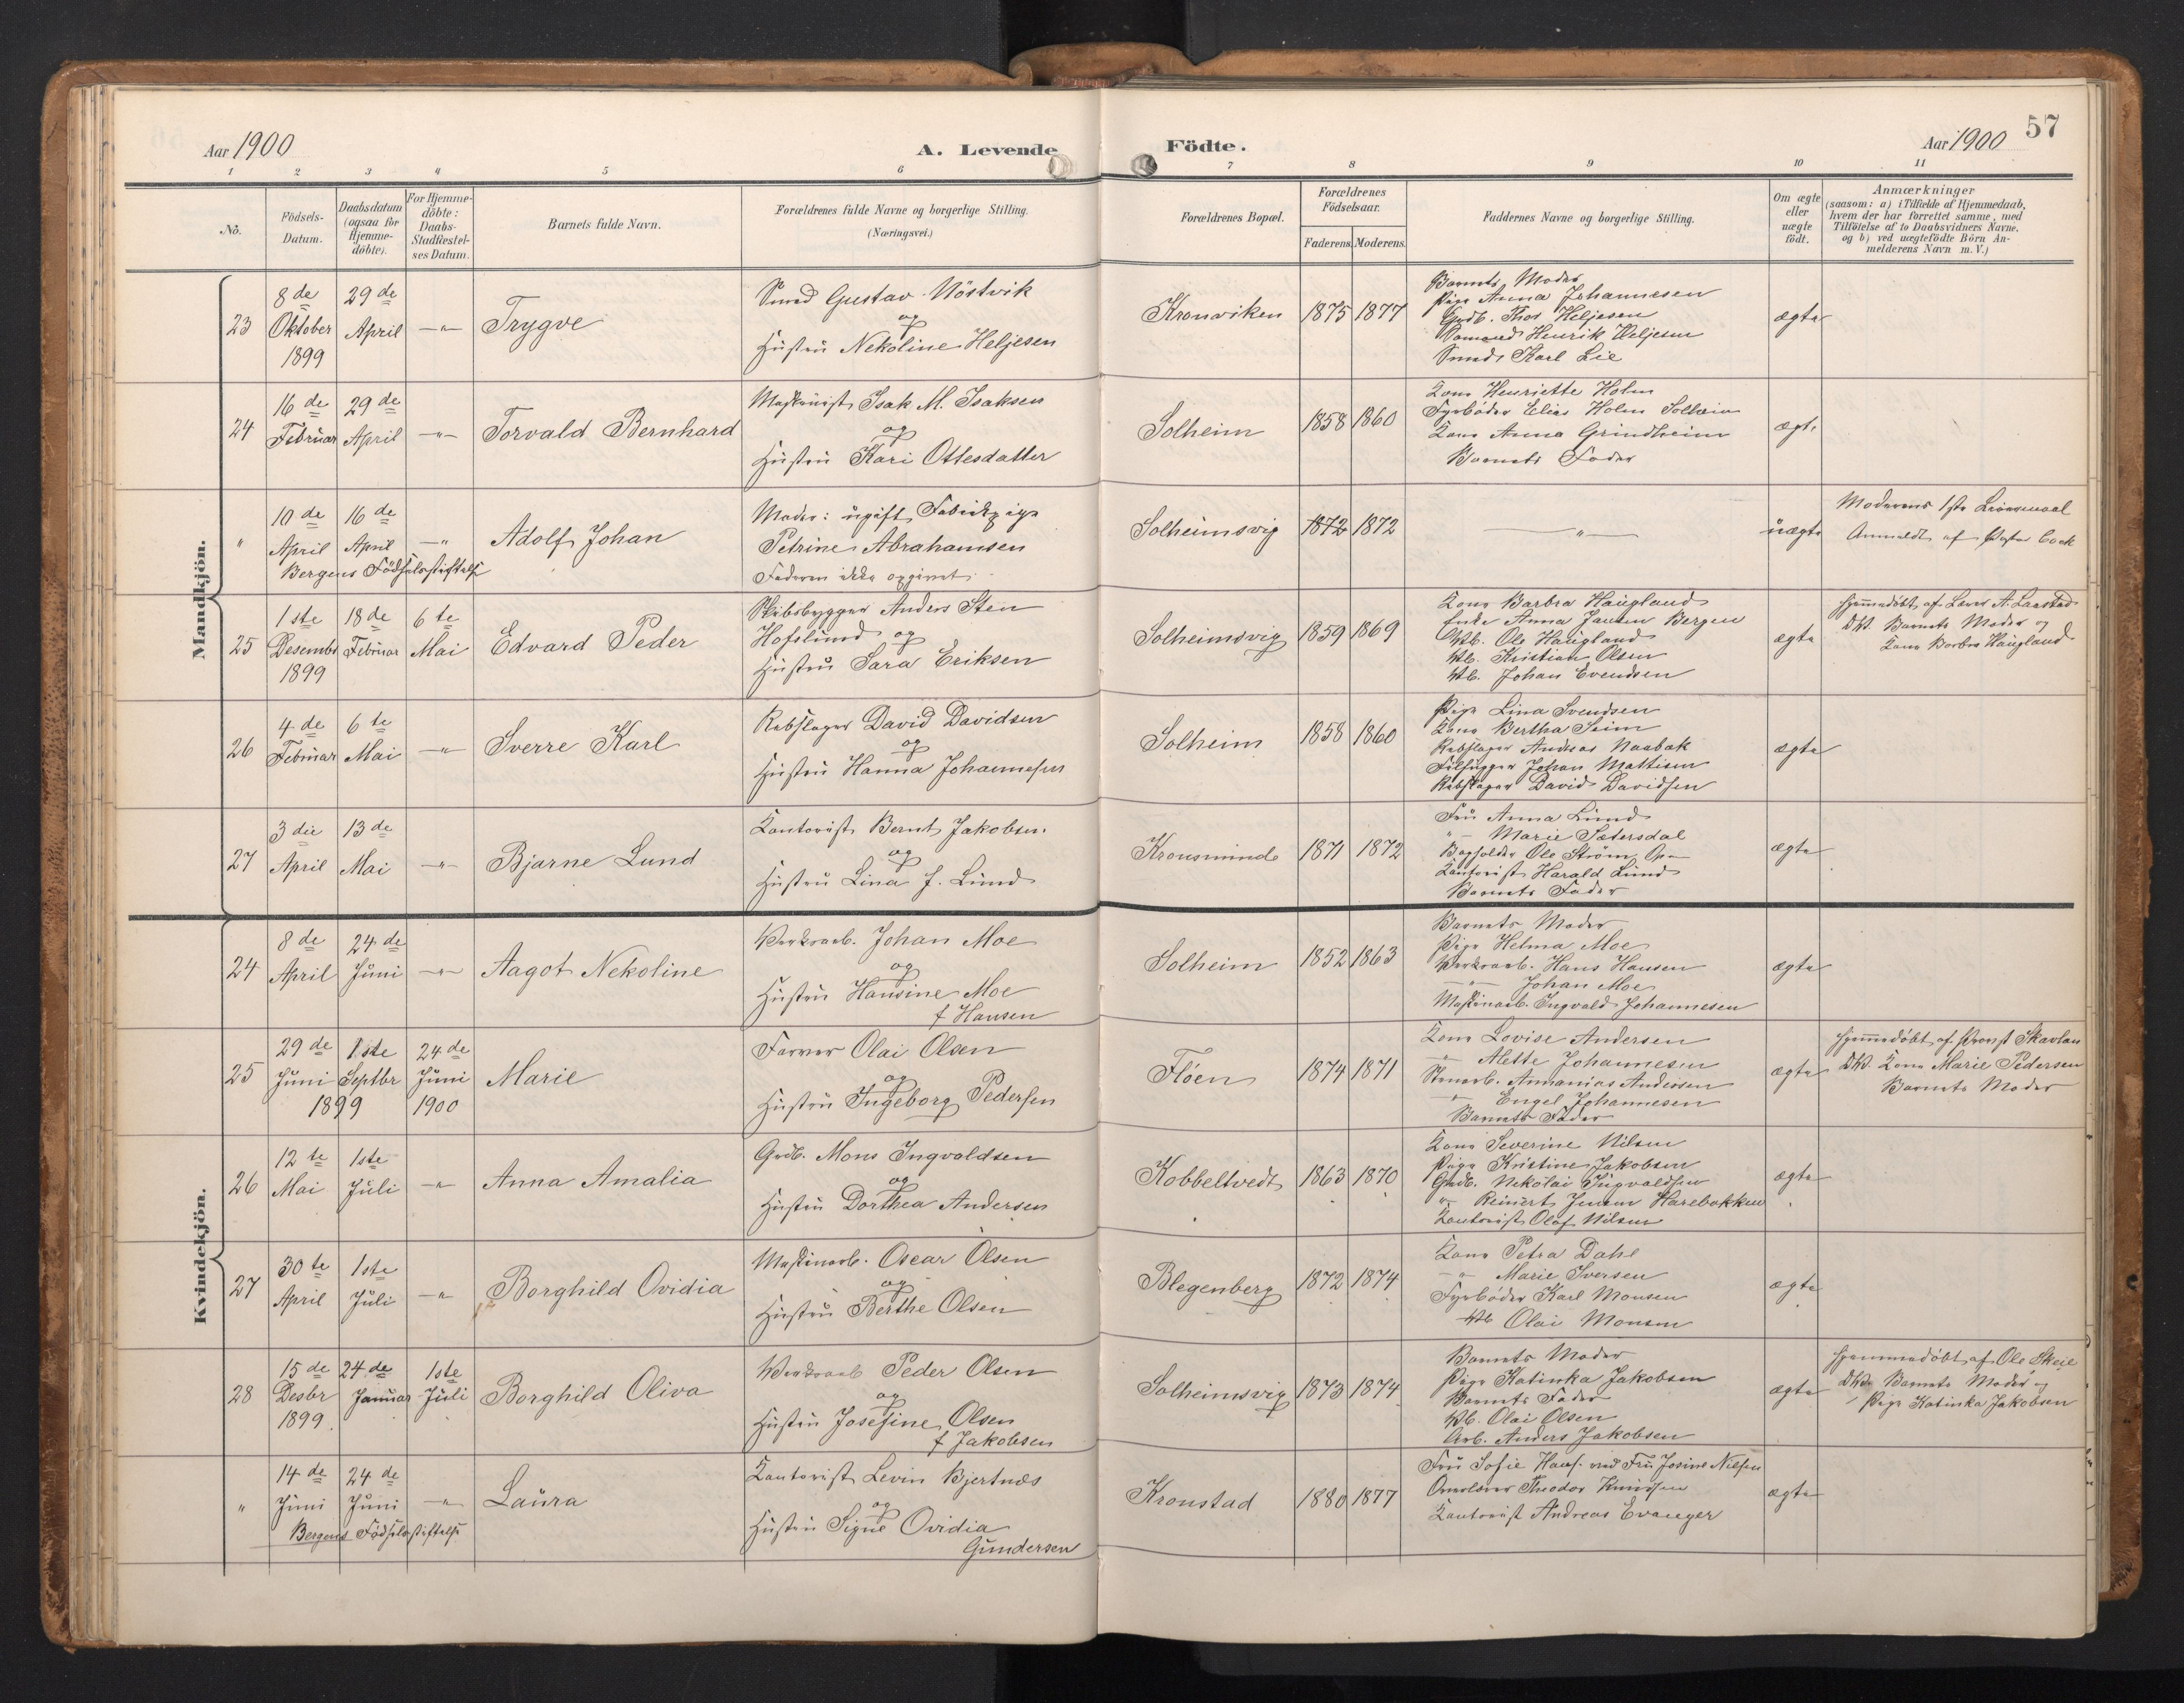 57
Aar 1900
A. Levende
Födte.
Aar 1900
1 2 3 4 5 6 7 8 9 10 11
No.
Födsels-Datum.
Daabsdatum (ogsaa för Hjemme-döbte).
For Hjemme-döbte: Daabs-Stadfiestel-ses Datum.
Barnets fulde Navn.
Forældrenes fulde Navne og borgerlige Stilling.
(Næringsvei.)
Forældrenes Bopæl.
Forældrenes Födselsaar.
Faderens. Moderens.
Faddernes Navne og borgerlige Stilling.
Om ægte eller uægte födt.
Anmærkninger
(saasom: a) i Tilfælde af Hjemmedaab,
hvem der har forrettet samme, med
Tilföielse af to Daabsvidners Navne.
og b) ved uægtefödte Börn An-
melderens Navn m.V.)
Mandkjön.
23
8de Oktober 1899
29de April
—"—
Trygve
Smed Gustav Nöstvik
og
Hustru Nekoline Heljesen
Kronviken
1875 1877
Barnets Moder
Pige Anna Johannesen
Grdb. Thor Heljesen
Sömand Henrik Heljesen
Smed Karl Lie
ægte
24
16de Februar
29de April
—"—
Torvald Bernhard
Maskinist Isak M. Isaksen
og
Hustru Kari Ottesdatter
Solheim
1858 1860
Kone Henriette Holm
Fyrböder Elias Holm Solheim
Kone Anna Grindheim
Barnets Fader
ægte
"
10de April
16de April
—"—
Bergens Födselsstiftelse
Adolf Johan
Moder: ugift Fabrikpige
Petrine Abrahamsen
Faderen ikke opgivet
Solheimsvig
1872 1872
—"—
uægte
Moderens 1ste Leiermaal
Anmeldt af
25
1ste Desembr 1899
18de Februar
6te Mai
Edvard Peder
Skibsbygger Anders Sten
Hofslund og
Hustru Sara Eriksen
Solheimsvig
1859 1869
Kone Barbra Haugland
Enke Anna Jansen Bergen
Ole Haugland
Kristian Olsen
Johan Evendsen
ægte
Hjemmedöbt af Lærer A. Laastad
Barnets Moder og
Kone Barbra Haugland
26
4de Februar
6te Mai
—"—
Sverre Karl
Rebslager David Davidsen
og
Hustru Hanna Johannesen
Solheim
1858 1860
Pige Lina Svendsen
Kone Bertha Seim
Rebslager Andreas Naabak
Filhugger Johan Mattisen
Rebslager David Davidsen
ægte
27
3die April
13de Mai
—"—
Bjarne Lund
Kontorist Bernt Jakobsen
og
Hustru Lina f. Lund
Kronsminde
1871 1872
Fru Anna Lund
" — Marie Sætersdal
Bogholder Ole Ström
Kontorist Harald Lund
Barnets Fader
ægte
Kvindekjön.
24
8de April
24de Juni
—"—
Aagot Nekoline
Værksarb. Johan Moe
og
Hustru Hansine Moe
f Hansen
Solheim
1852 1863
Barnets Moder
Pige Helma Moe
Værksarb. Hans Hansen
—"— Johan Moe
Maskinarb. Ingvald Johannesen
ægte
25
29de Juni
1ste Septbr
1899
24de Juni 1900
Marie
Farver Olai Olsen
og
Hustru Ingeborg Pedersen
Flöen
1874 1871
Kone Lovise Andersen
—"— Alette Johannesen
Stenarb. Annanias Andersen
—"— Engel Johannesen
Barnets Fader
ægte
Hjemmedöbt af Provst Skavlan
Kone Marie Pedersen
Barnets Moder
26
12te Mai
1ste Juli
—"—
Anna Amalia
Grdb. Mons Ingvaldsen
og
Hustru Dorthea Andersen
Kobbeltvedt
1863 1870
Kone Severine Nilsen
Pige Kristine Jakobsen
Grdb. Nikolai Ingvaldsen
"— Reinert Jensen Harebakken
Kontorist Olaf Nilsen
ægte
27
30te April
1ste Juli
—"—
Borghild Ovidia
Maskinarb. Oscar Olsen
og
Hustru Berthe Olsen
Blegenberg
1872 1874
Kone Petra Dahl
—"— Marie Iversen
Fyrböder Karl Monsen
Olai Monsen
ægte
28
15de Desbr 1899
24de Januar
1ste Juli
Borghild Oliva
Værksarb Peder Olsen
og
Hustru Josefine Olsen
f Jakobsen
Solheimsvig
1873 1874
Barnets Moder
Pige Katinka Jakobsen
Barnets Fader
Olai Olsen
Arb. Anders Jakobsen
ægte
Hjemmedöbt af Ole Skeie
Barnets Moder og
Pige Katinka Jakobsen
"
14de Juni
24de Juni
—"—
Bergens Födselsstiftelse
Laura
Kontorist Levin Bjertnæs
og
Hustru Signe Ovidia
Gundersen
Kronstad
1880 1877
Fru Sofie ved Fru Josine Nilsen
Overlærer Theodor Knudsen
Kontorist Andreas Evanger
ægte